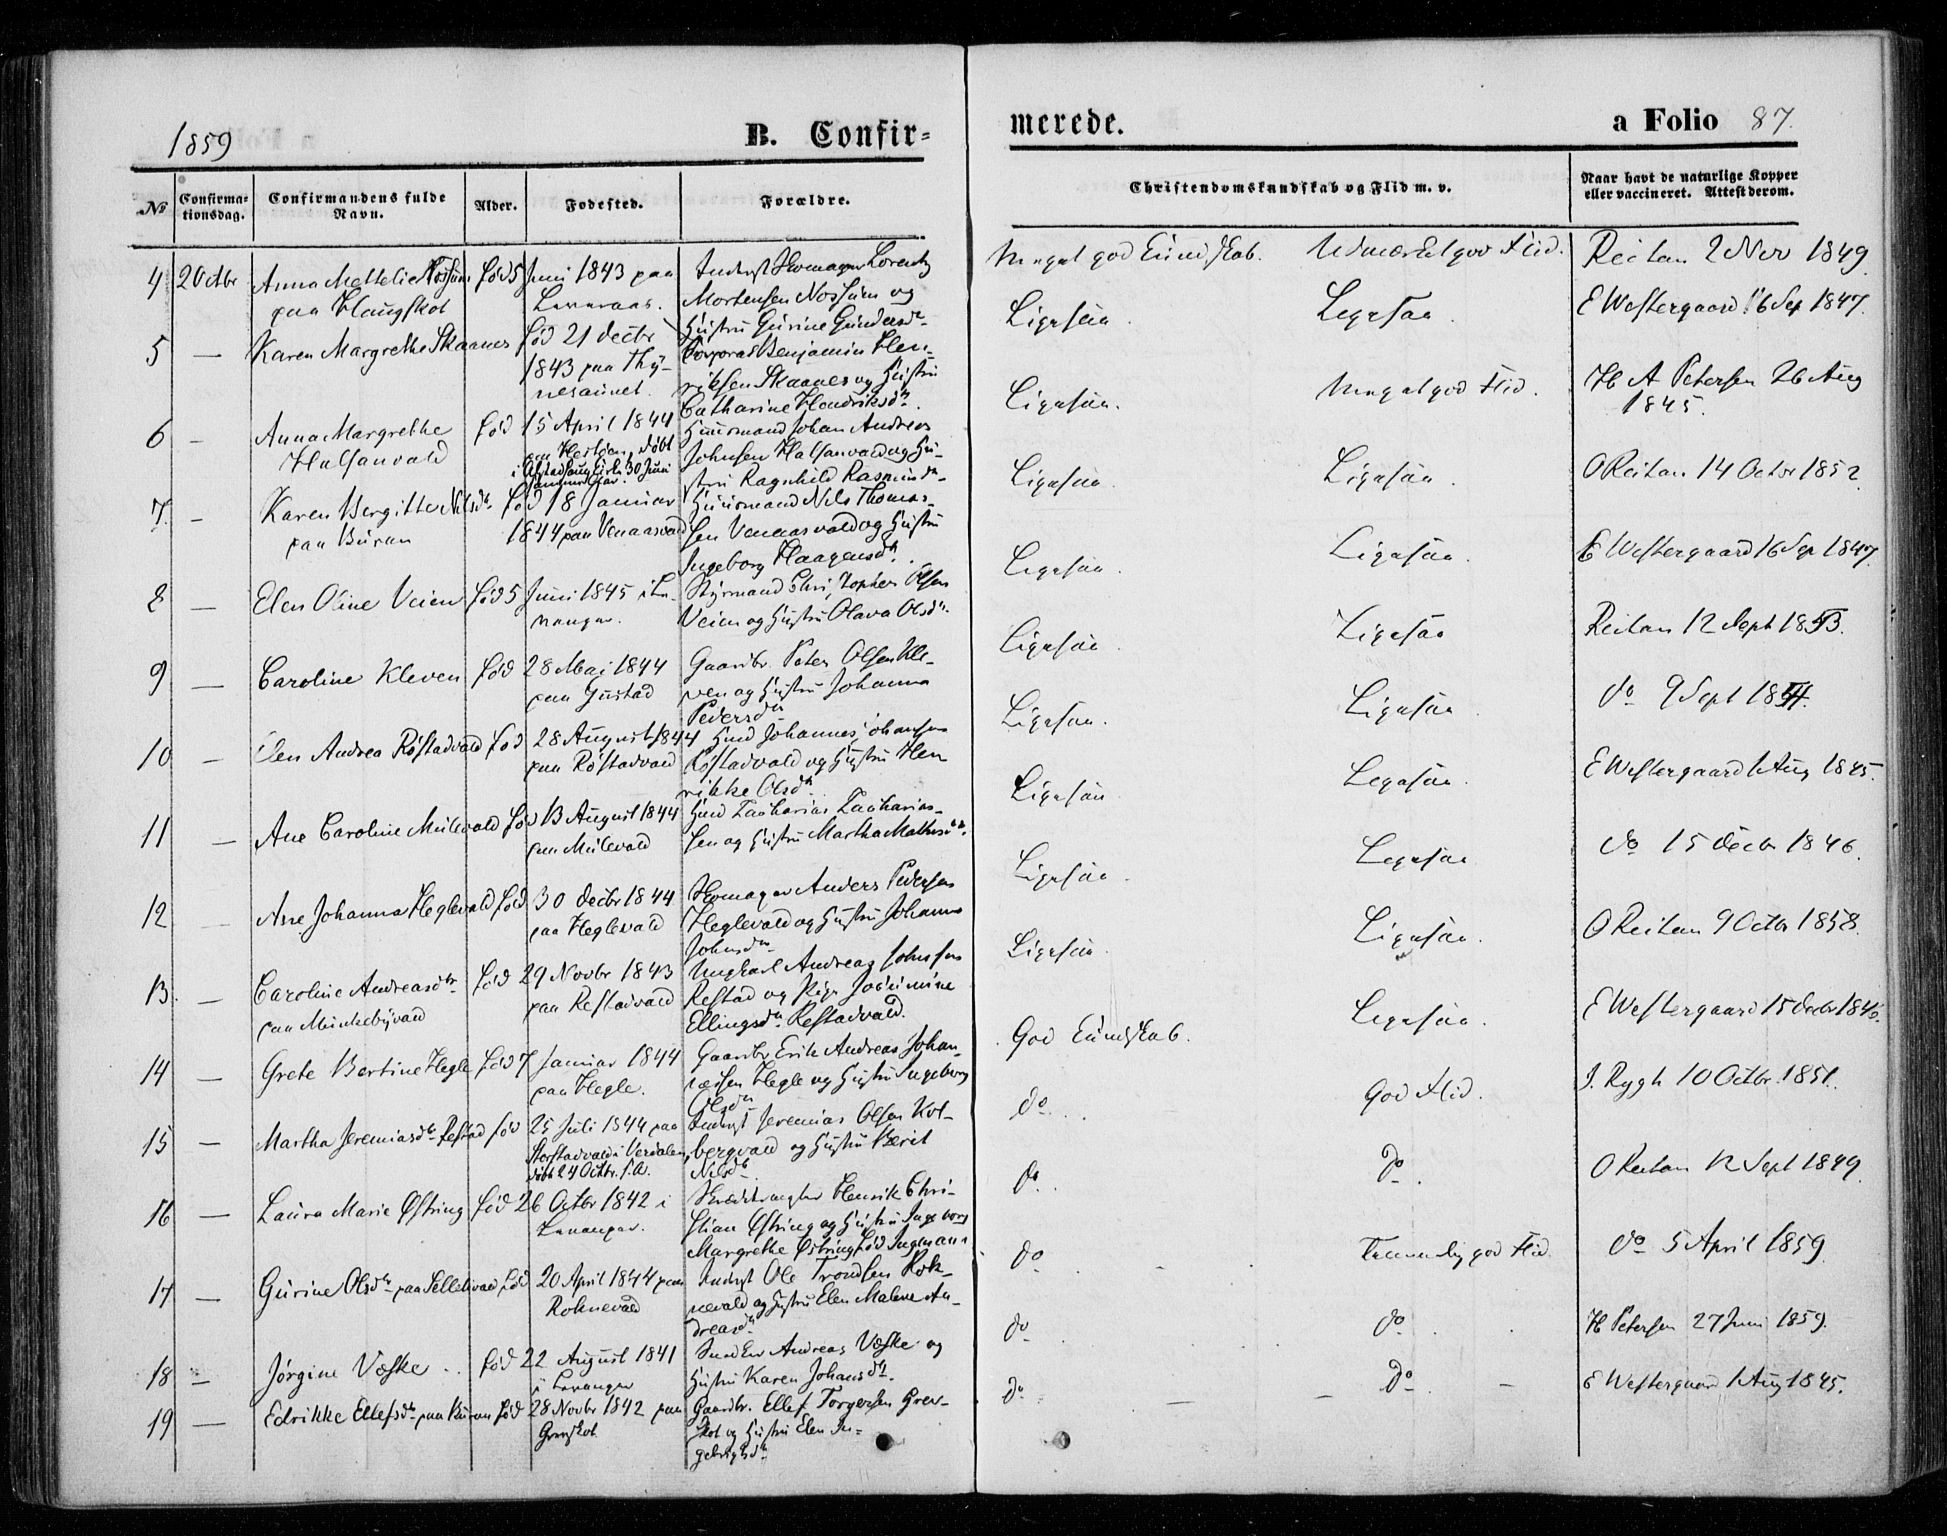 1859
B. Confir=
merede.
a Folio 87.
No
Confirma-
tionsdag.
Confirmandens fulde
Navn.
Alder.
Fødested.
Forældre.
Christendomskundskab og Flid m. v.
Naar havt de naturlige Kopper
eller vaccineret. Attest derom.
4 2 Octbr Anna Mettelie Nossum
paa Haugskot
født 5 Juni 1843 paa
Inderst Skomager Lorents
Mortensen Nossum og
Hustru Gurine Gundersdtr
Meget god Kundskab. Udmærket god Flid. Reitan 2 Nov 1849
5 — Karen Margrethe Skaanes
født 21 Decbr
1843 paa Thy-
nesaunet.
Corporal Benjamin Hen-
riksen Skaanes og Hustru
Catharine Hendriksdtr.
Ligesaa. Ligesaa. E Westergaard 16 Sep 1847.
6 — Anna Margrethe
Halsanvald
født 15 April 1844
døbt
30 Juni
Huusmand Johan Andreas
Johnsen Halsanvald og Hu-
stru Ragnhild Rasmusdtr
Ligesaa. Meget god Flid. H A Petersen 26 Aug
1845.
7. — Karen Bergitte Nilsdtr
paa Buran
født 18 Januar
1844 paa Venaasvald
Huusmand Nils Thomas-
sen Venaasvald og Hustru
Ingeborg Haagensdtr.
Ligesaa. Ligesaa. O Reitan 14 Octbr 1852
8 — Elen Oline Veien
født 5 Juni 1845 i Le-
vanger.
Styrmand Christopher Olsen
Veien og Hustru Olava Olsdtr.
Ligesaa. Ligesaa. E Westergaard 16 Sep 1847.
9 — Caroline Kleven
født 28 Mai 1844
paa Gustad
Gaardbr. Peter Olsen Kle-
ven og Hustru Johanna
Pedersdtr
Ligesaa. Ligesaa Reitan 12 Sept 1853.
10 — Elen Andrea Røstadvald
født 28 August 1844
paa Røstadvald
Huusd Johannes Johansen
Røstadvald og Hustru Hen
rikke Olsdtr.
Ligesaa. Ligesaa do 9 Sept 1854.
11 — Ane Caroline Mulevald
født 13 August 1844
paa Mulevald
Huusd Zacharias Zacharias-
sen og Hustru Martha Mathisdtr.
Ligesaa Ligesaa. E Westergaard 1 Aug 1845.
12 — Ane Johanna Heglevald
født 30 Decbr 1844
paa Heglevald
Skomager Anders Pedersen
Heglevald og Hustru Johanna
Johnsdtr
Ligesaa. Ligesaa do 15 Decbr 1846.
13. — Caroline Andreasdtr
paa Munkebyvald
født 29 Novbr 1843
paa Restadvald
Ungkarl Andreas Johnsen
Restad og Pige
Ellingsdtr. Restadvald.
Ligesaa. Ligesaa. O Reitan 9 Octbr 1858.
14 — Grete Bertine Hegle
født 7 Januar 1844
paa Hegle.
Gaardbr Erik Andreas Johan-
nessen Hegle og Hustru Ingeborg
Olsdtr
God Kundskab. Ligesaa. E Westergaard 15 Decbr 1846.
15 — Martha Jeremiasdtr Restad
født 25 Juli 1844 paa
i Verdalen,
døbt 24 Octbr. s. A.
Inderst Jeremias Olsen Kol-
bergvald og Hustru Berit
Nilsdtr.
do. God Flid. I. Rygh 10 Octbr. 1851.
16 — Laura Marie Østring
født 26 Octbr 1842 i
Levanger.
Henrik Chri-
stian Østring og Hustru Ingeborg
Margrethe Østring født Ingmann
do. do. O Reitan 12 Sept 1849
17 — Gurine Olsdtr paa
født 20 April 1844 paa
Roknevald
Inderst Ole Trondsen Rok-
nevald og Hustru Elen Malene An-
dreasdtr
do Temmelig god Flid. do 5 April 1859
18 — Jørgine Væske
født 22 August 1841
i Levanger
Andreas Væske og
Hustru Karen Johansdtr.
do do H Petersen 27 Juni 1859.
19 — Edrikke Ellefsdtr paa Buran
født 28 Novbr 1842 paa
Grevskot
Gaardbr. Ellef Torgersen Grev-
skot og Hustru Elen In-
gebrigtsdtr
do do E Westergaard 1 Aug 1845.